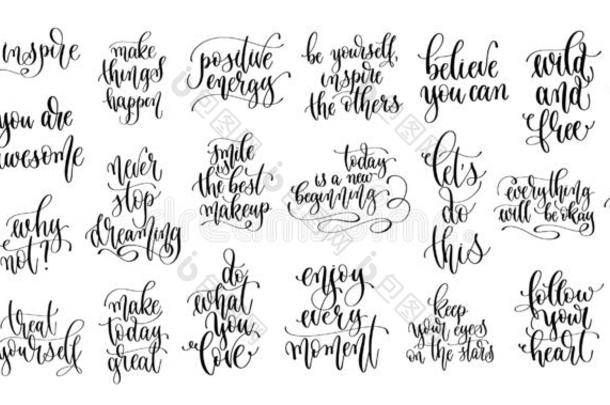 inspire
make
things
happen
positive
energy
be yourself,
inspire
the others
believe
you can
wild
and
free
you are
awesome
never
stop
dreaming
smile
is
the best
makeup
today
is a new
beginning
let's
do
this
everything
will be okay
why
not?
treat
yourself
make
today
great
do
what
you
love
enjoy
every
moment
keep
your eyes
on the stars
follow
your
heart